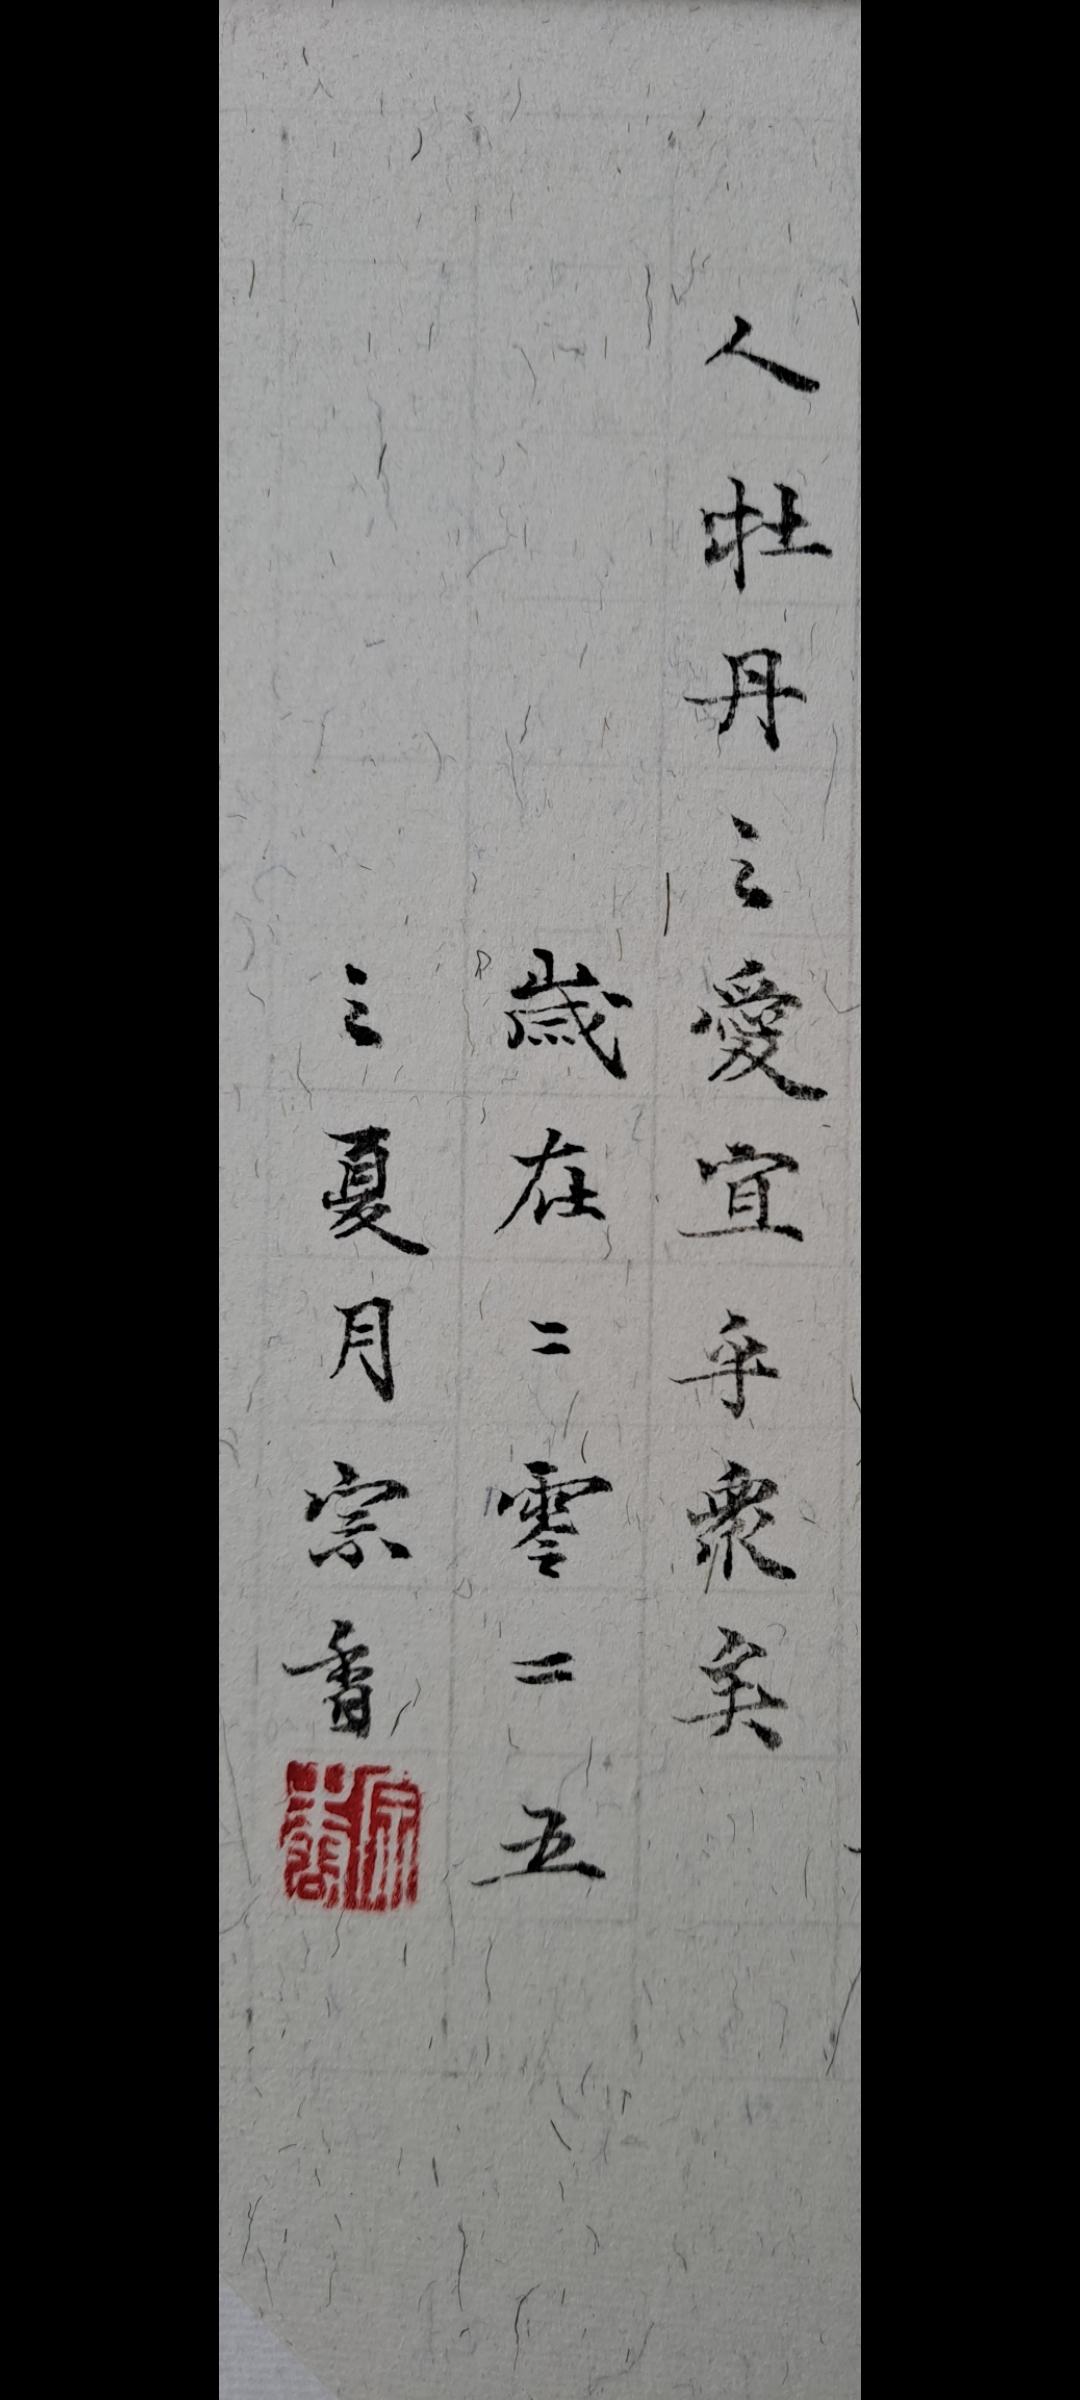 人牡丹之愛宜乎衆矣
歲在二零二五
之夏月宗香
宗香